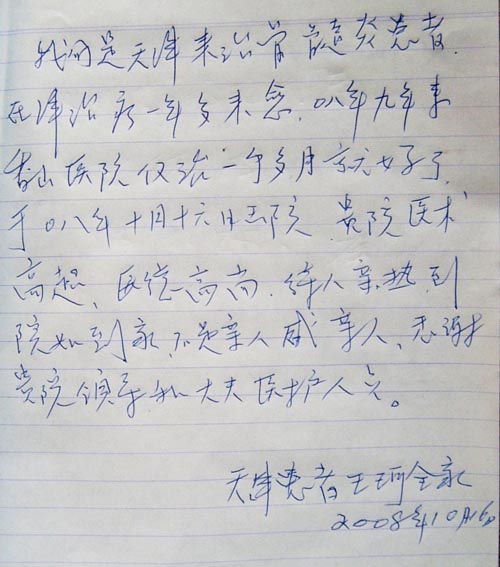 我们是天津来治骨髓炎患者.
在津治疗一年多未愈.08年九年来
香山医院仅治一个多月就好了
于08年十月十六日出院 贵院医术
高超、医德高尚.待人亲热.到
院如到家.不是亲人胜亲人、感谢
贵院领导和大夫医护人员。
天津患者王珂全家
2008年10月16日